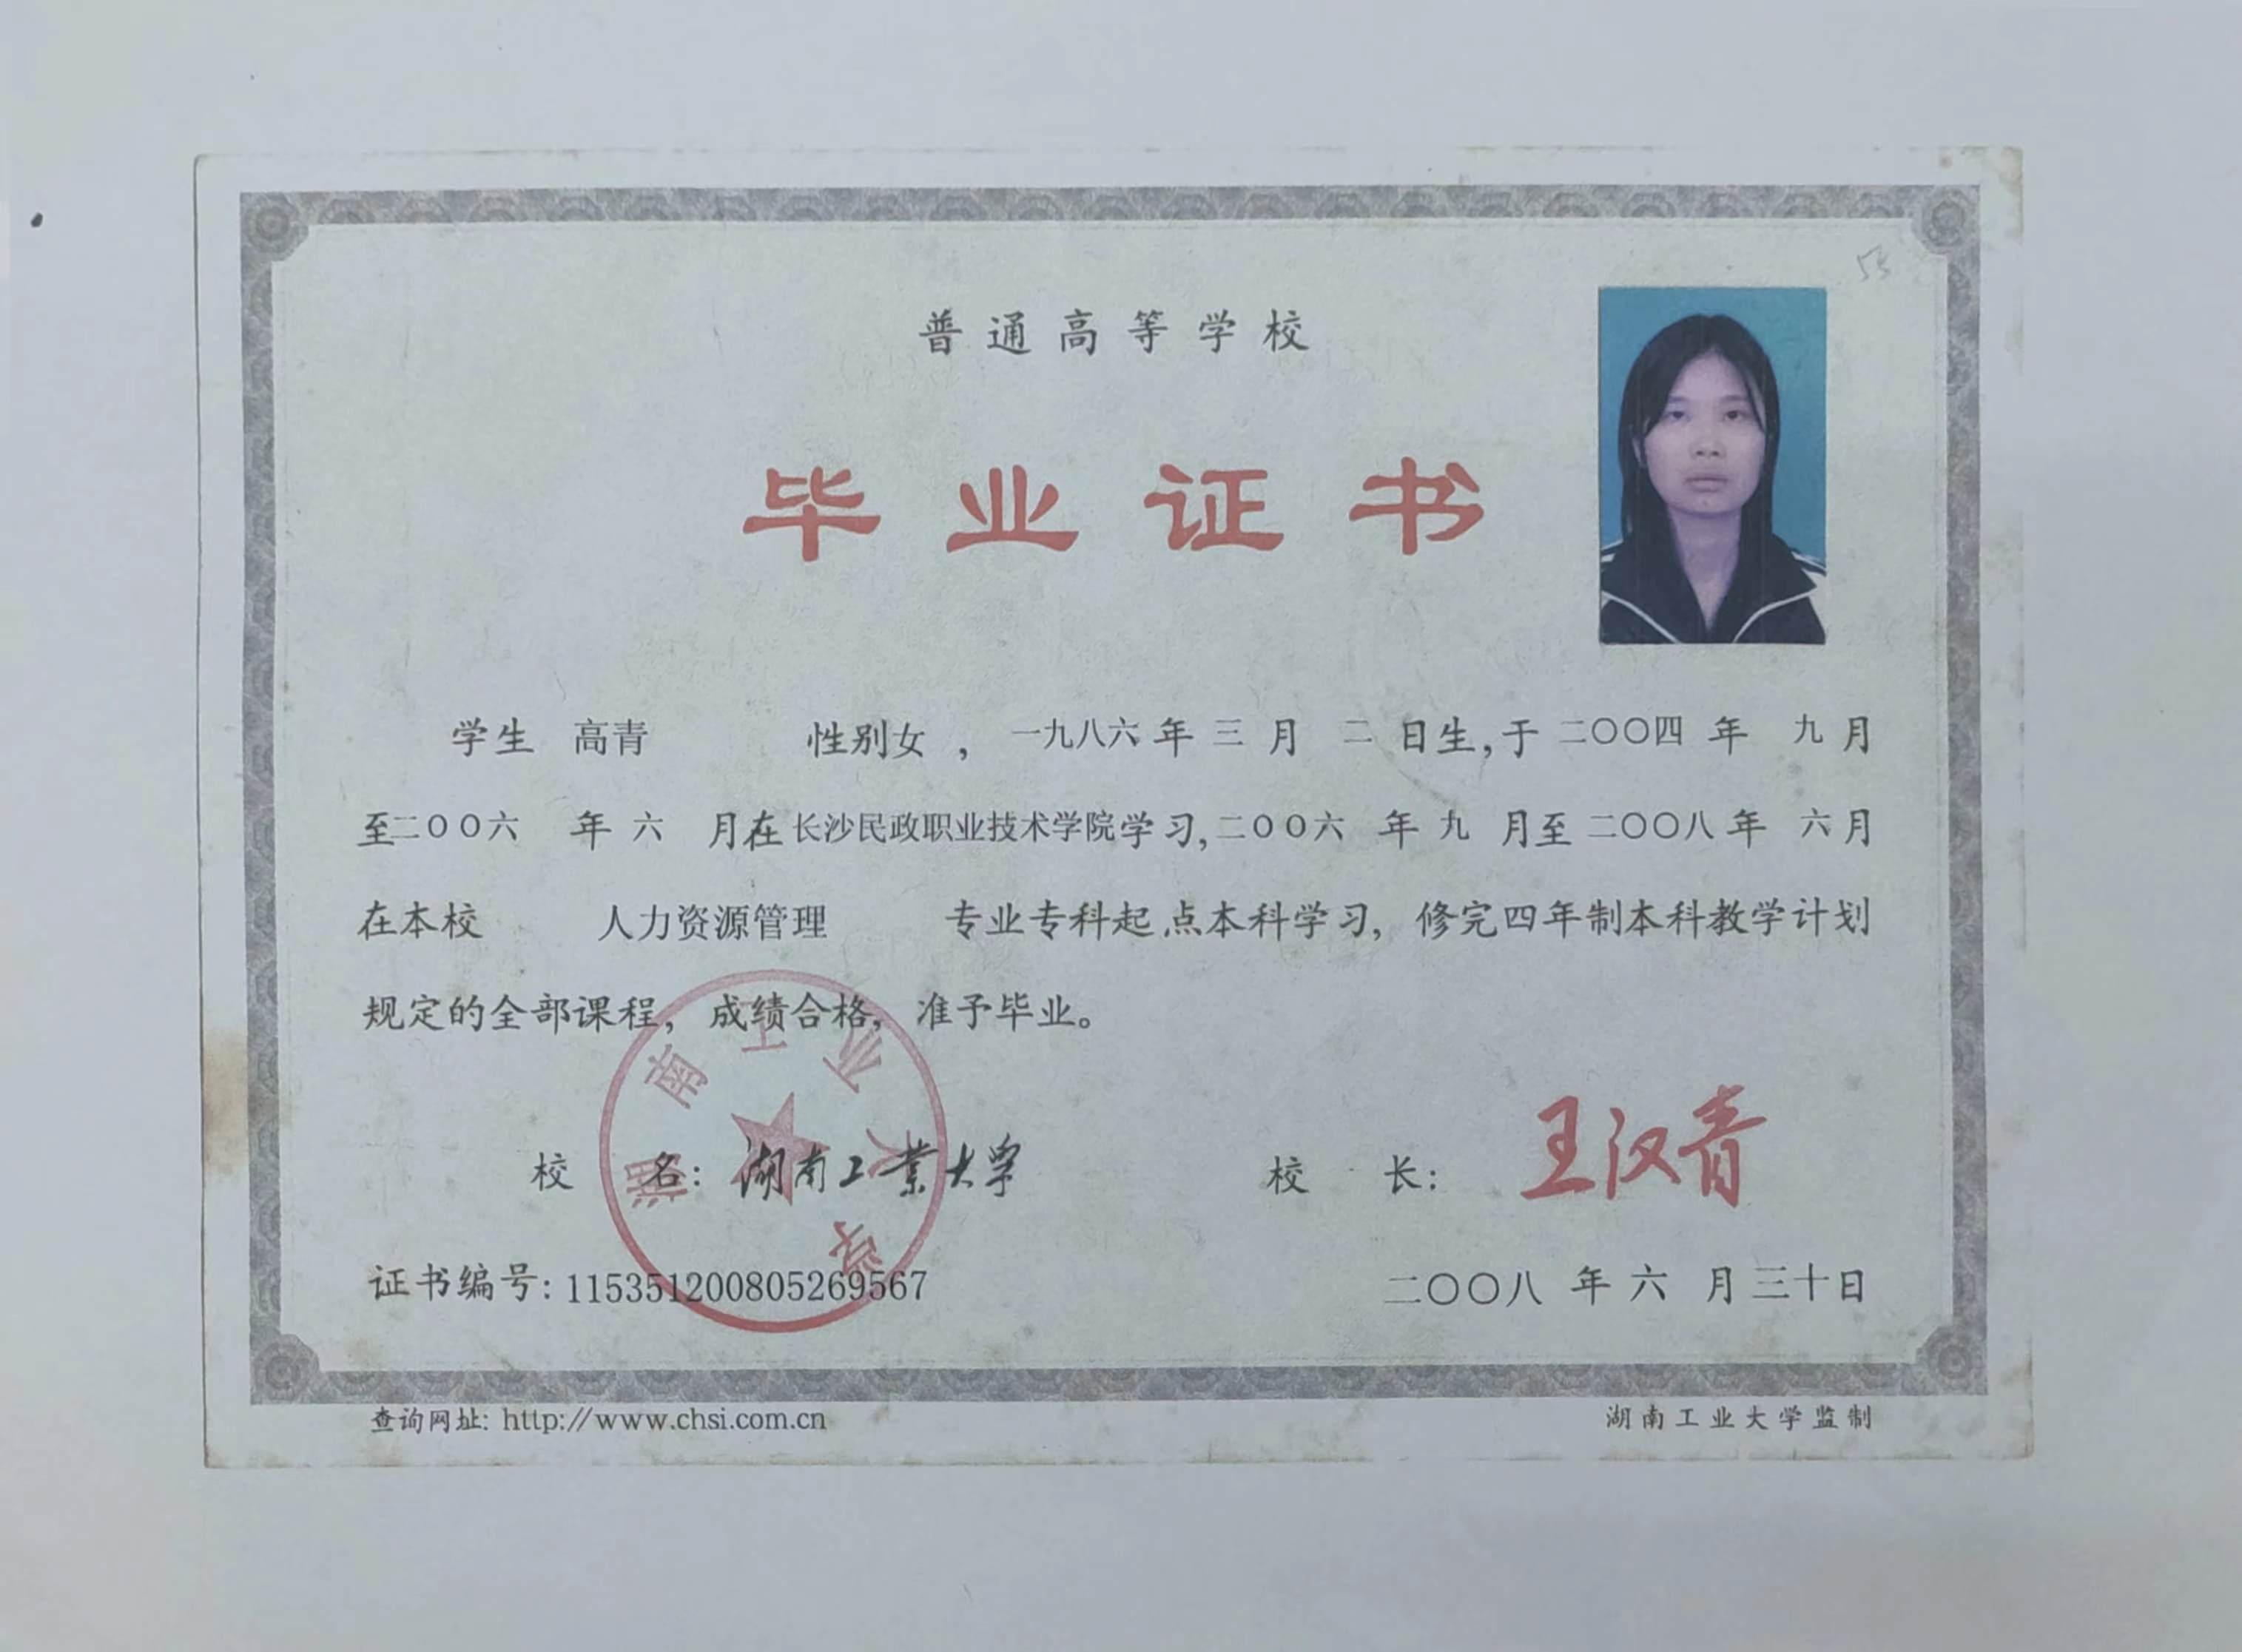 55
普通高等学校
毕业证书
学生 高青 性别女 , 一九八六 年 三 月 二 日生,于 二〇〇四 年 九 月
至二〇〇六 年 六 月在 长沙民政职业技术学院学习,二〇〇六 年 九 月至 二〇〇八 年 六 月
在本校 人力资源管理 专业专科起点本科学习, 修完四年制本科教学计划
规定的全部课程, 成绩合格, 准予毕业。
湖南工业大学
校 名: 湖南工業大学 校 长: 王汉青
证书编号: 115351200805269567 二〇〇八 年 六 月 三十日
查询网址: http://www.chsi.com.cn 湖南工业大学监制